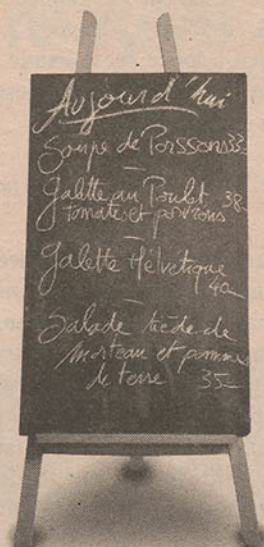 Aujourd'hui
Soupe de Poissons 33.-
Galette au Poulet 38.-
tomate et poivrons
Galette Helvetique
40.-
Salade tiède de
morteau et pommes
de terre 35.-